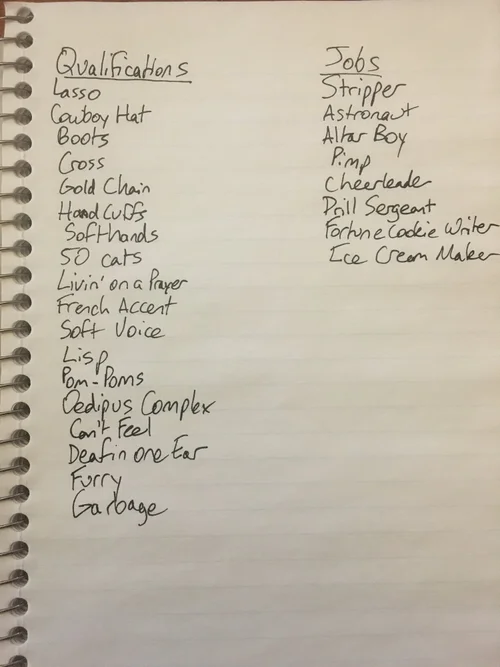 Qualifications
Lasso
Cowboy Hat
Boots
Cross
Gold Chain
Handcuffs
Softhands
50 cats
Livin' on a Prayer
French Accent
Soft Voice
Lisp
Pom-Poms
Oedipus Complex
Can't Feel
Deaf in one Ear
Furry
Garbage
Jobs
Stripper
Astronaut
Altar Boy
Pimp
Cheerleader
Drill Sergeant
Fortune Cookie Writer
Ice Cream Maker